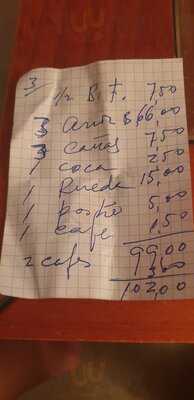 3
1/2 B. F. 7,50
3 arroz B 66,00
3 cañas 7,50
1 coca 2,50
1 Rueda 15,00
1 postre 5,00
1 cafe 1,50
99,00
2 cafes 3,00
102,00